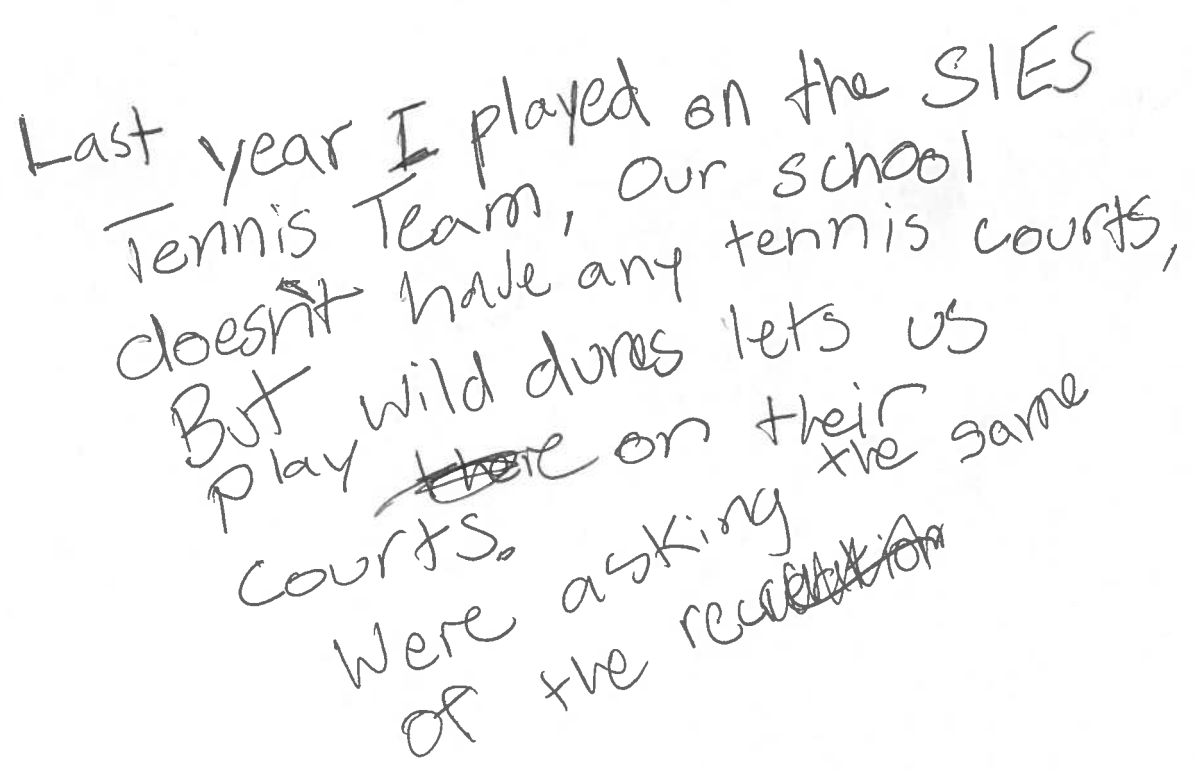 Last year I played on the SIES
Tennis Team, Our school
doesn't have any tennis courts,
But wild dunes lets us
play there on their
courts.
Were asking the same
of the